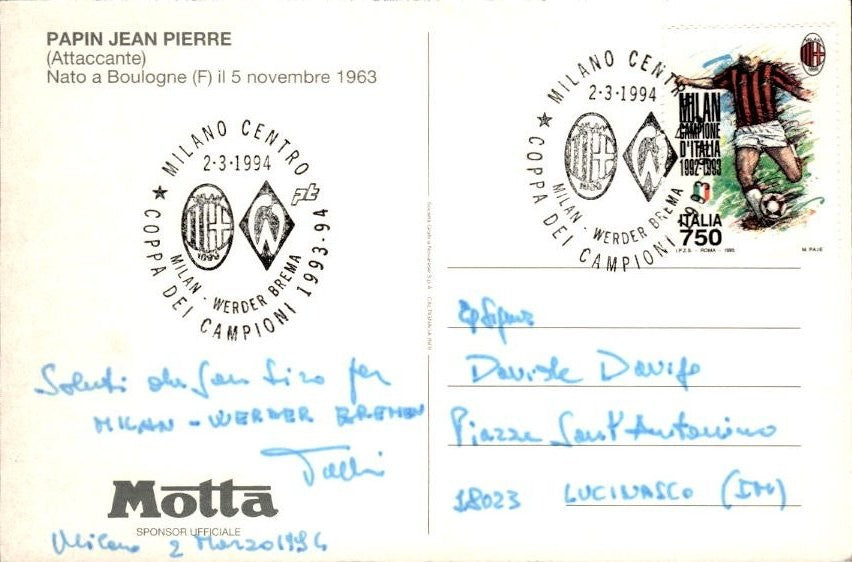 PAPIN JEAN PIERRE
(Attaccante)
Nato a Boulogne (F) il 5 novembre 1963
MILANO CENTRO
2-3-1994
pt
1899
MILAN - WERDER BREMA
★ COPPA DEI CAMPIONI 1993-94
Saluti da San Siro per
MILAN - WERDER BREMEN
Motta
SPONSOR UFFICIALE
Milano 2 Marzo 1994
MILANO CENTRO
2-3-1994
1899
MILAN - WERDER BREMA
★ COPPA DEI CAMPIONI 1993
MILAN
CAMPIONE
D'ITALIA
1992-1993
ITALIA
750
I.P.Z.S. - ROMA - 1993
Davide
Piazza Sant'Antonino
18023 LUCINASCO (IM)